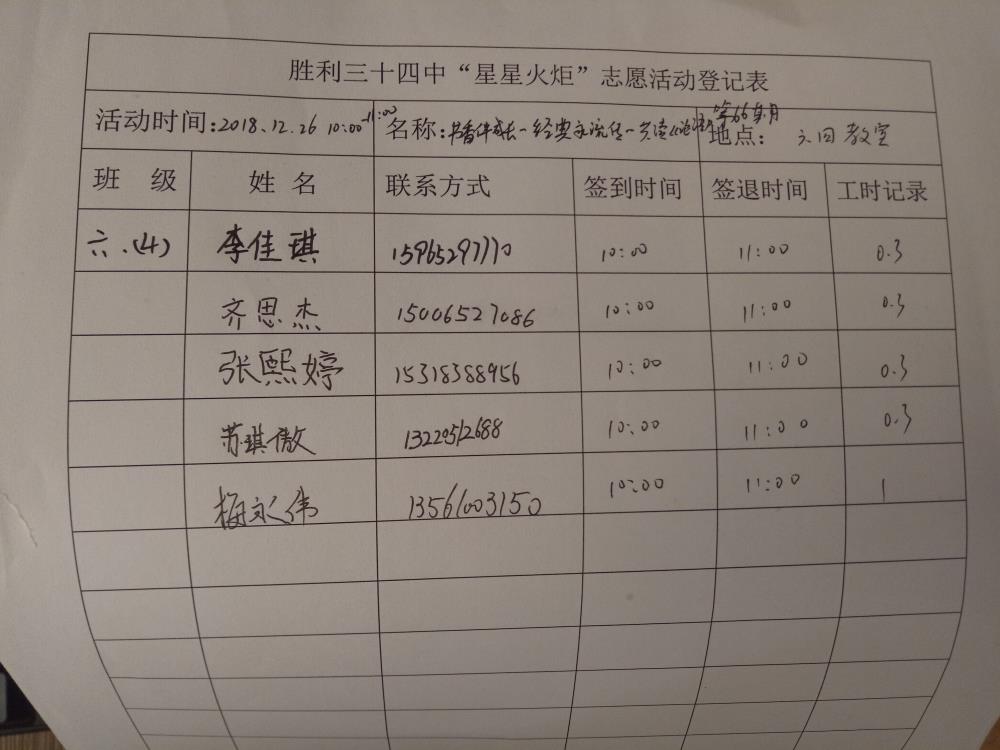 胜利三十四中“星星火炬”志愿活动登记表
活动时间:2018.12.26 10:00-11:00 名称:书香伴成长-经典永流传-共读 第66集月 地点: 六四教室
班 级 姓 名 联系方式 签到时间 签退时间 工时记录
六.(4) 李佳琪 15965297770 10:00 11:00 0.3
齐思杰 15006527086 10:00 11:00 0.3
张熙婷 15318388956 10:00 11:00 0.3
苏琪傲 13220512688 10:00 11:00 0.3
梅永伟 13561003150 10:00 11:00 1